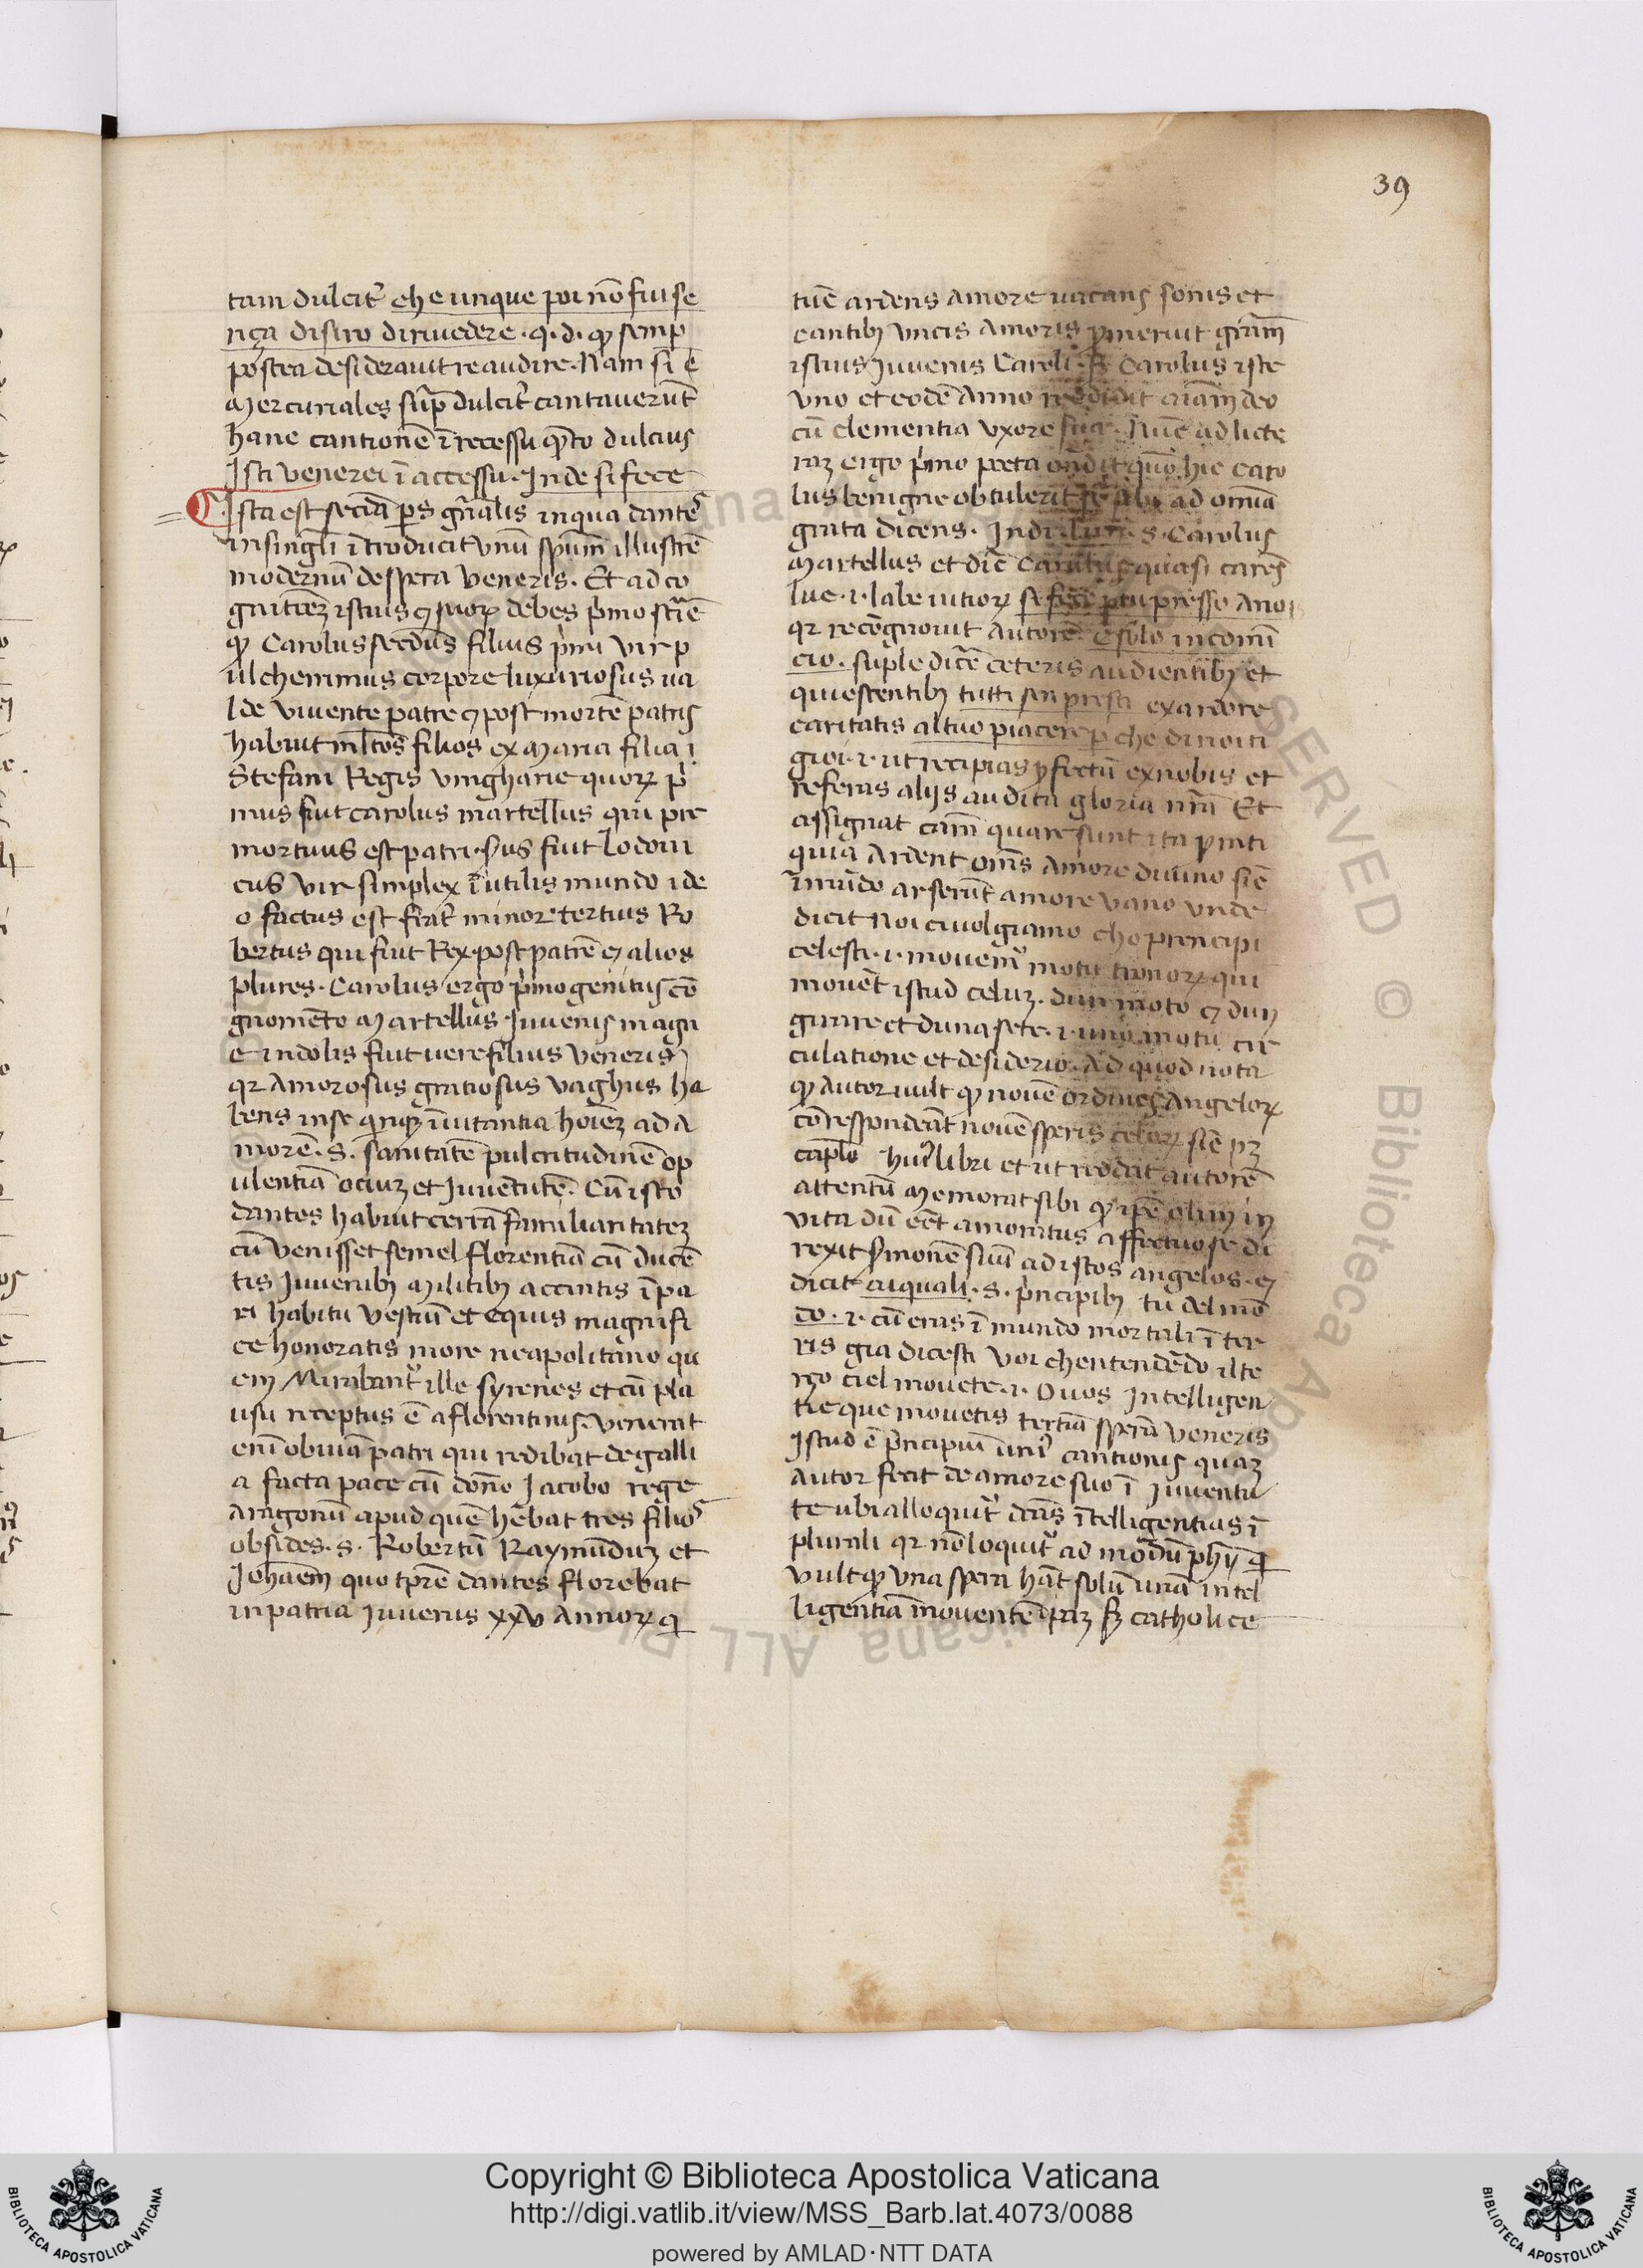 39
tam dulcit᷑ che unque poi nō fui se
nça disiro di rivedere · q · d · qͥ semp
postea desideravit reaudire · Nam si ē
Mercuriales sup̄ dulcit᷑ cantaverūt
hanc cantionē ī recessu qͣto dulcius
Isti venerei ī accessu · Inde si fece
Ista est sec̄da ps gn̄alis in qua dante
in singl̄i ītroducit unū spūm illustrē
modernū de spera veneris · Et ad co
gnitiēz istius ⁊ suoꝝ debes p̄mo scīre
qͥ Carolus secūdus filius p̄mi vir p
ulcherrimus corpore luxuriosus va
lde vivente patre ⁊ post mortē patris
habuit ml̄tos filios ex Maria filia
Stefani Regis vngharie quoꝝ p̄
mus fuit carolus martellus qui pre
mortuus est patri · s̄us fuit Lodoui
cus vir simplex īutilis mundo ide
o factus est frat᷑ minor tertius Ro
bertus qui fuit Rex post patrē ⁊ alios
plures · Carolus ergo p̄mogenitus co
gnomento Martellus Juvenis magn
e indolis fuit vere filius veneris
qr amorosus gratiosus vaghus ha
bens in se qͥnqꝫ īvitantia hoīez ad a
morē · s · sanitatē pulcritudinē op
ulentiā ociuz et Juventutē · Cū isto
dantes habuit certā familiaritatez
cū venisset semel florentiā cū ducē
tis Juvenibꝫ Militibꝫ accintis ī pa
ri habitu vestiū et equis magnifi
ce honoratis more neapolitano qu
em Mirabant᷑ ille syrenes et cū pla
usu receptus ē a florentinis venerat
eni obviā patri qui redibat de galli
a facta pace cū dōno Jacobo rege
aragonū apud quē hēbat tres filio
obsides · s · Robertū Raymūduz et
Johāem quo tp̄re dantes florebat
in patria Juvenis xxv Annoꝝ qͥ
tūc ardens amore vacans sonis et
cantibꝫ vncis amoris p̄meruit gīam
istius Juvenis Caroli · Carolus iste
uno et eodē Anno reddidit aīam deo
cū clementia uxore sua · Nūc ad licte
raz ergo p̄mo poeta ōndit qūo hic caro
lus benigne obtulerit se sibi ad omīa
grata dicens · Indi · s · Carolus
Martellus et dic̄ Carolus quasi carēs
lue · i · labe vitioꝝ si fece presso a noi
qr recōgnovit autorē · e solo incomī
cio · suple dicē ceteris audientibꝫ et
quiescentibꝫ tutti sin presti ex ardore
caritatis al tuo piacere p che di noi ti
gioi · i · ut recipias p̄fectū ex nobis et
referas alijs audita gloria nr̄a Et
assignat cām quare sunt ita p̄mti
quia ardent om̄s amore divino sic̄
ī mūdo arserūt amore vano unde
dicit Noi ci volgiamo cho prencipi
celesti · i · movem᷑ motu tronoꝝ qui
movēt istud celuz · dun moto ⁊ dun
girare et duna sete · i · uno motu cir
culatione et desiderio · Ad quod nota
qͥ autor vult qͥ novē ordines Angeloꝝ
correspondeāt novē speris celoꝝ sic̄
cap̄lo hui᷑ libri et ut reddat autorē
attentū memorat sibi qͥ ipē olim in
vita dū eēt amoratus affectuose di
rexit s̄monē suū ad istos angelos · ⁊
dicit ai quali · s · p̄ncipibꝫ tu del mō
do · i · cū eras ī mundo mortali ī ter
ris gia dicesti Voi chentendēdo il te
rço ciel movete · i · O vos Intelligen
tie que movetis tertiā sperā veneris
Istud ē p̄ncipiū uni᷑ cantionis quaz
autor fecit de amore suo ī Juventu
te ubi alloquit᷑ dn̄s ītelligentias ī
plurali qr nō loquit᷑ ad modū ph̄y qͥ
vult qͥ una spera hāt solū unā intel
ligentiā moventē ipaz sꝫ catholice
Copyright © Biblioteca Apostolica Vaticana
http://digi.vatlib.it/view/MSS_Barb.lat.4073/0088
powered by AMLAD·NTT DATA
BIBLIOTECA APOSTOLICA VATICANA
BIBLIOTECA APOSTOLICA VATICANA